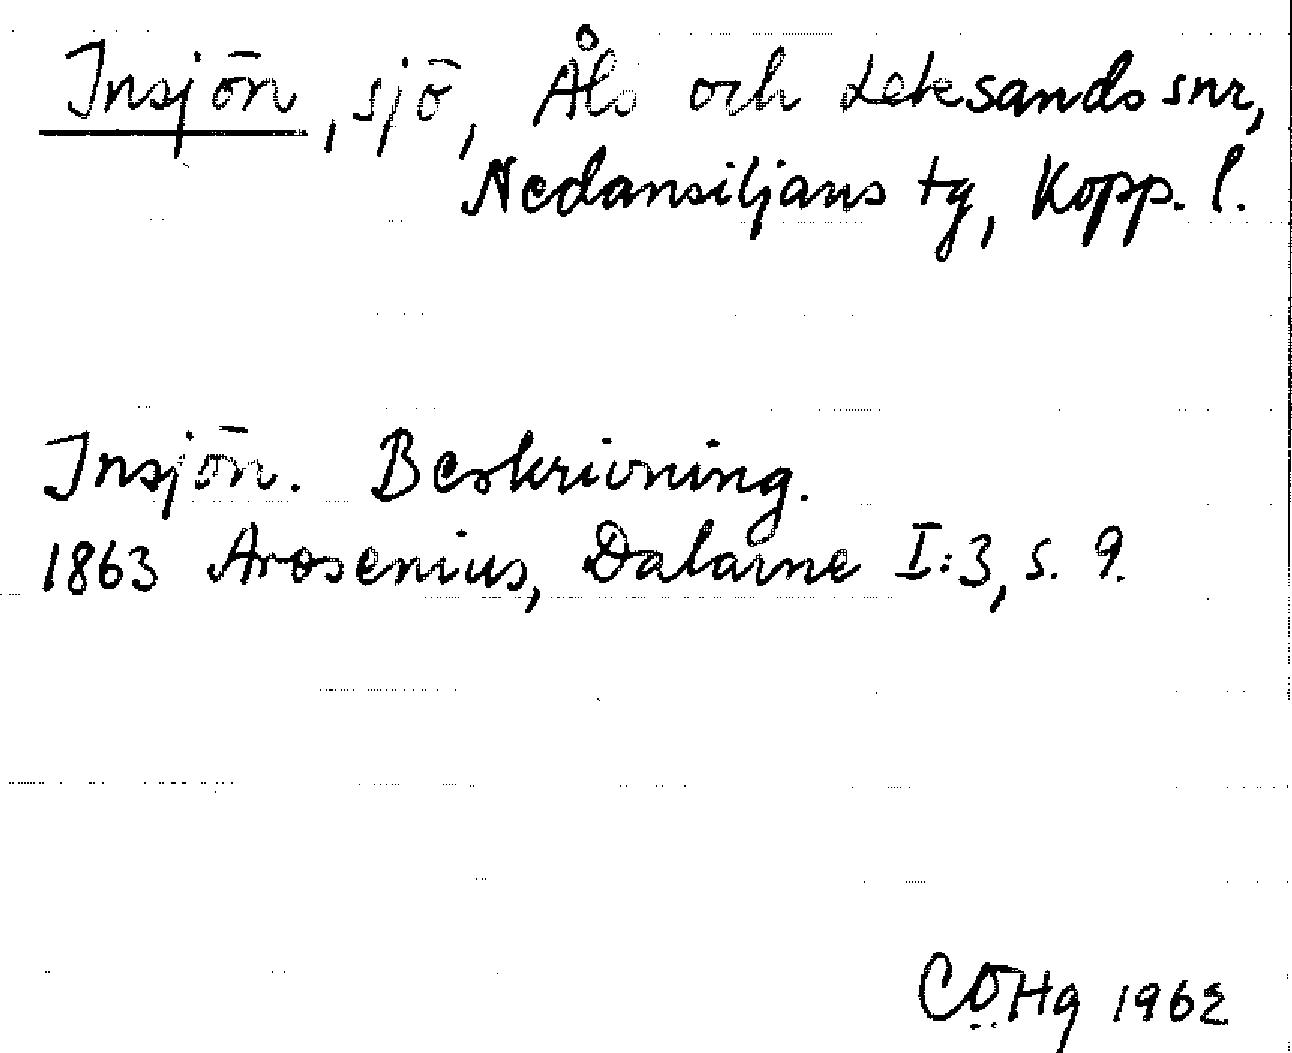 Insjön, sjö, Åls och Leksands snr,
Nedansiljans tg, Kopp. l.
Insjön. Beskrivning.
1863 Arosenius, Dalarne I:3, s. 9.
CÖHg 1962